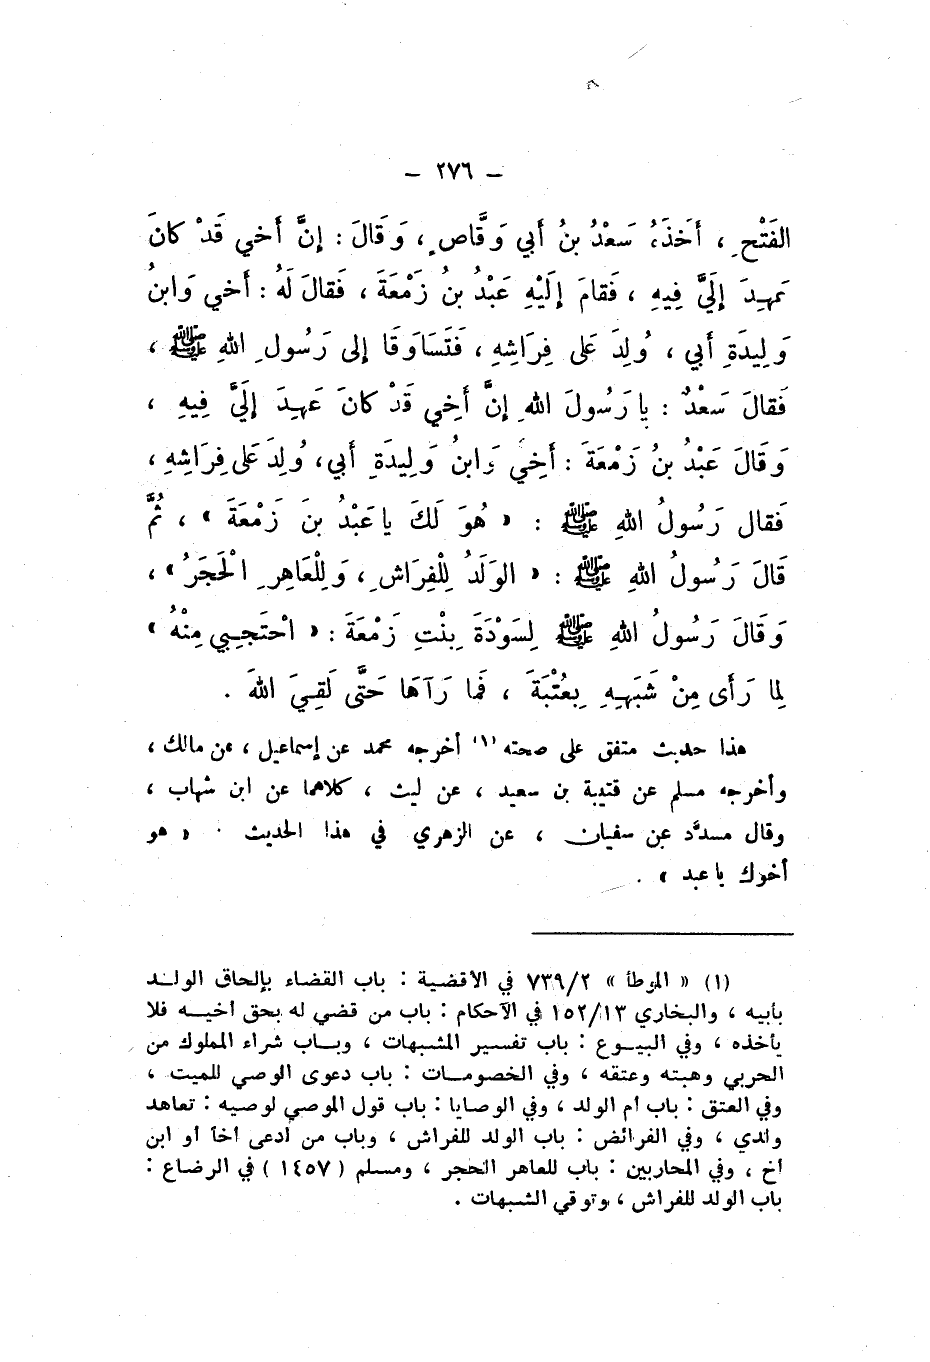 – ٢٧٦ –
الفَتْحِ ، أَخَذَهُ سَعْدُ بنُ أَبي وَقَّاصٍ ، وَقَالَ : إنَّ أَخي قَدْ كانَ
عَهِدَ إِلَيَّ فِيهِ ، فَقامَ إِلَيْهِ عَبْدُ بنُ زَمْعَةَ ، فَقالَ لَهُ : أَخي وَابنُ
وَلِيدَةِ أَبي ، وُلِدَ عَلى فِرَاشِهِ ، فَتَسَاوَقَا إلى رَسُولِ اللهِ ﷺ ،
فَقالَ سَعْدٌ : يا رَسُولَ اللهِ إنَّ أَخِي قَدْ كانَ عَهِدَ إلَيَّ فِيهِ ،
وَقَالَ عَبْدُ بنُ زَمْعَةَ : أَخِي وَابنُ وَلِيدَةِ أَبي ، وُلِدَ عَلى فِرَاشِهِ ،
فَقال رَسُولُ اللهِ ﷺ : « هُوَ لَكَ يا عَبْدُ بنَ زَمْعَةَ » ، ثُمَّ
قَالَ رَسُولُ اللهِ ﷺ : « الوَلَدُ لِلْفِرَاشِ ، وَلِلْعَاهِرِ الْحَجَرُ » ،
وَقَالَ رَسُولُ اللهِ ﷺ لِسَوْدَةَ بِنْتِ زَمْعَةَ : « احْتَجِبِي مِنْهُ »
لِما رَأَى مِنْ شَبَهِهِ بِعُتْبَةَ ، فَما رَآهَا حَتَّى لَقِيَ اللهَ .
هذا حديث متفق على صحته (١) أخرجه محمد عن إسماعيل ، عن مالك ،
وأخرجه مسلم عن قتيبة بن سعيد ، عن ليث ، كلاهما عن ابن شهاب ،
وقال مسدَّد عن سفيان ، عن الزهري في هذا الحديث . « هو
أخوك يا عبد » .
(١) « الموطأ » ٧٣٩/٢ في الأقضية : باب القضاء بإلحاق الولد
بأبيه ، والبخاري ١٥٢/١٣ في الأحكام : باب من قضي له بحق أخيه فلا
يأخذه ، وفي البيوع : باب تفسير المشبهات ، وباب شراء المملوك من
الحربي وهبته وعتقه ، وفي الخصومات : باب دعوى الوصي للميت ،
وفي العتق : باب أم الولد ، وفي الوصايا : باب قول الموصي لوصيه : تعاهد
ولدي ، وفي الفرائض : باب الولد للفراش ، وباب من ادعى أخاً أو ابن
أخ ، وفي المحاربين : باب للعاهر الحجر ، ومسلم ( ١٤٥٧ ) في الرضاع :
باب الولد للفراش ، وتوقي الشبهات .